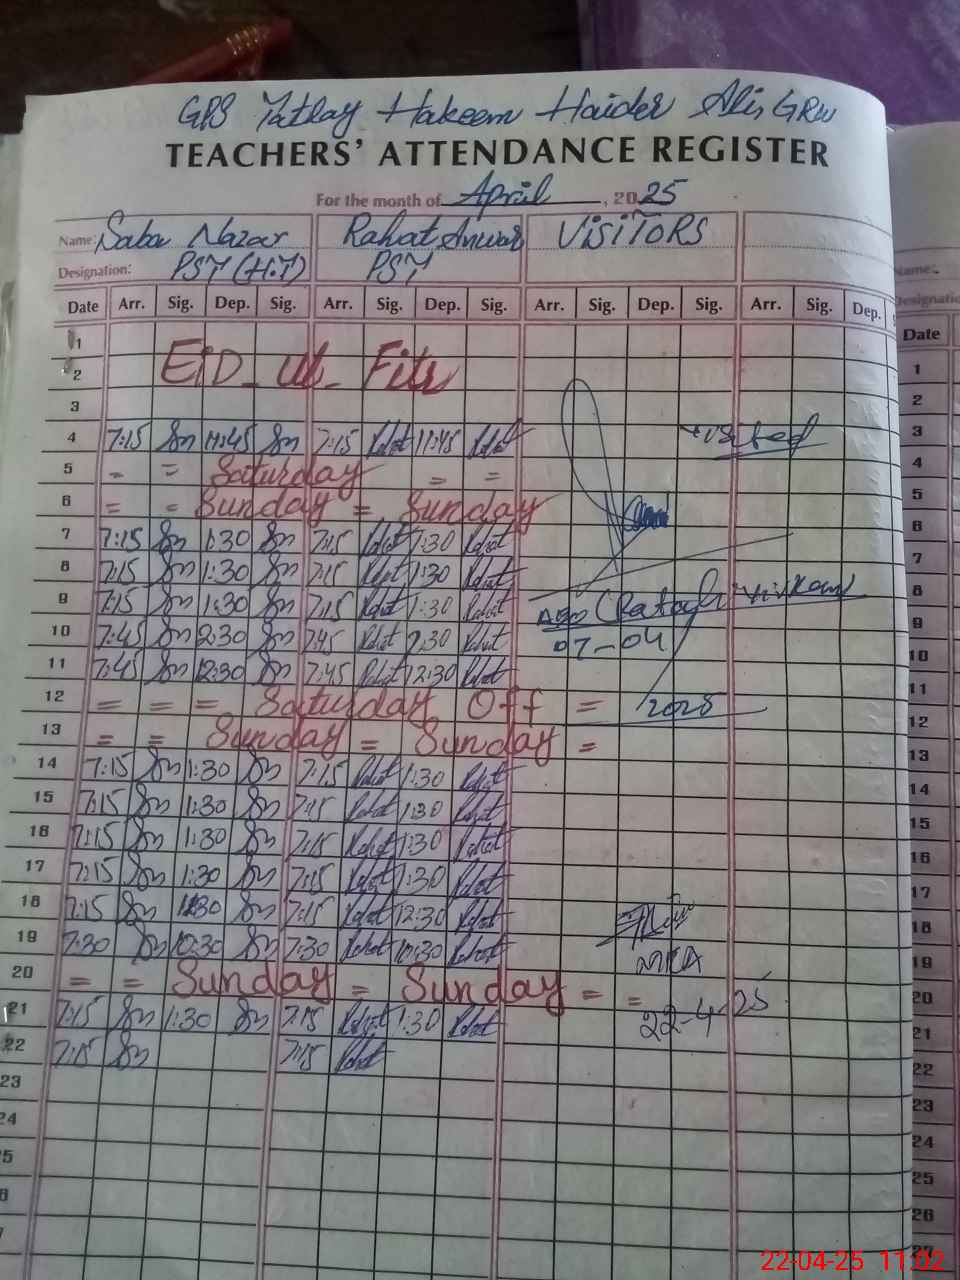 GPS Tatlay Hakeem Haider Ali, GRW
TEACHERS' ATTENDANCE REGISTER
For the month of April, 2025
Name: Saba Nazar Rahat Anwar VISITORS
Designation: PST (H.T) PST
Date Arr. Sig. Dep. Sig. Arr. Sig. Dep. Sig. Arr. Sig. Dep. Sig. Arr. Sig. Dep.
1
2 EiD_ul_Fitr
3
4 7:15 Sn 11:45 Sn 7:15 Rahat 11:45 Rahat visited
5 = = Saturday = =
6 = = Sunday = Sunday
7 7:15 Sn 1:30 Sn 7:15 Rahat 1:30 Rahat
8 7:15 Sn 1:30 Sn 7:15 Rahat 1:30 Rahat
9 7:15 Sn 1:30 Sn 7:15 Rahat 1:30 Rahat
10 7:45 Sn 2:30 Sn 7:45 Rahat 2:30 Rahat 07-04
11 7:45 Sn 12:30 Sn 7:45 Rahat 12:30 Rahat
12 = = = Saturday Off = 2025
13 = = Sunday = Sunday =
14 7:15 Sn 1:30 Sn 7:15 Rahat 1:30 Rahat
15 7:15 Sn 1:30 Sn 7:15 Rahat 1:30 Rahat
16 7:15 Sn 1:30 Sn 7:15 Rahat 1:30 Rahat
17 7:15 Sn 1:30 Sn 7:15 Rahat 1:30 Rahat
18 7:15 Sn Sn 7:15 Rahat 12:30 Rahat
19 7:30 Sn 10:30 Sn 7:30 Rahat 10:30 Rahat MEA
20 = = Sunday = Sunday = =
21 7:15 Sn 1:30 Sn 7:15 Rahat 1:30 Rahat 22-4-25
22 7:15 Sn 7:15 Rahat
23
24
Name:
Date
1
2
3
4
5
6
7
8
9
10
11
12
13
14
15
16
17
18
19
20
21
22
23
24
25
26
22-04-25 11:02